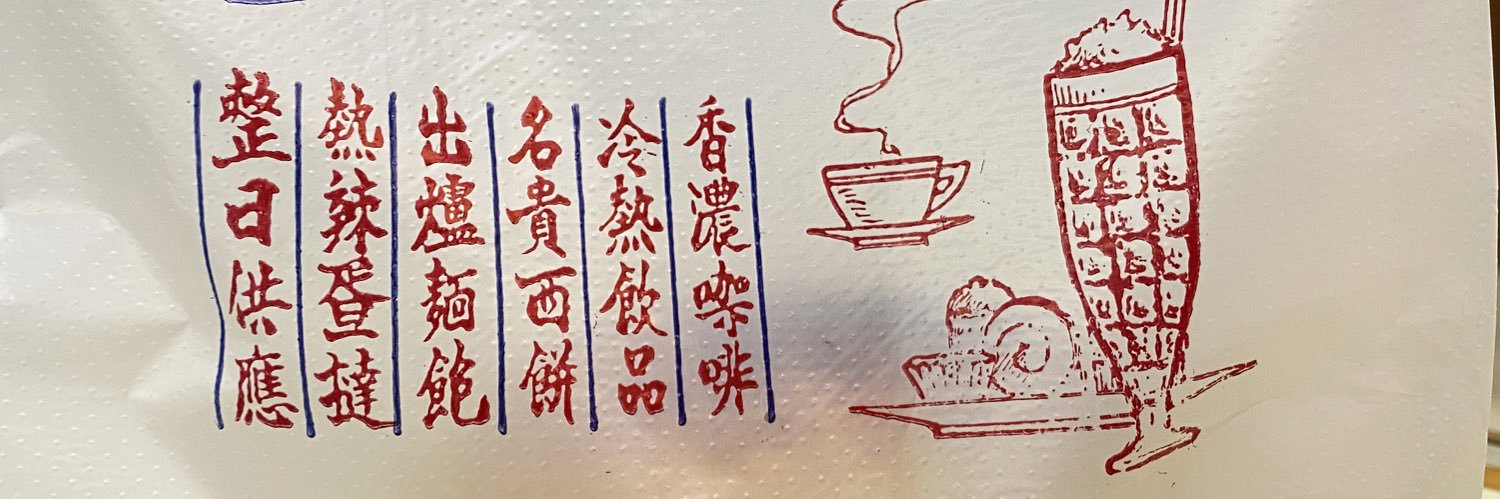 香濃咖啡
冷熱飲品
名貴西餅
出爐麵飽
熱辣蛋撻
整日供應